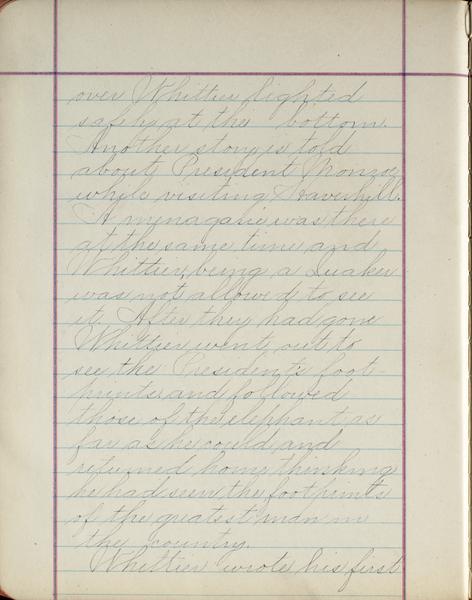 over Whittier lighted
safely at the bottom.
Another story is told
about President Monroe
while visiting Haverhill.
A menagarie was there
at the same time and
Whittier, being a Quaker
was not allowed to see
it. After they had gone
Whittier went out to
see the President's foot-
prints and followed
those of the elephant as
far as he could and
returned home thinking
he had seen the footprints
of the greatest man in
the country.
Whittier wrote his first